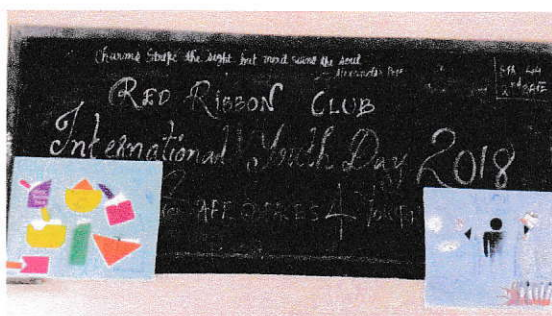 Charms strike the sight but merit wins the soul
Alexander Pope
RED RIBBON CLUB
International Youth Day 2018
SPACES 4 YOUTH